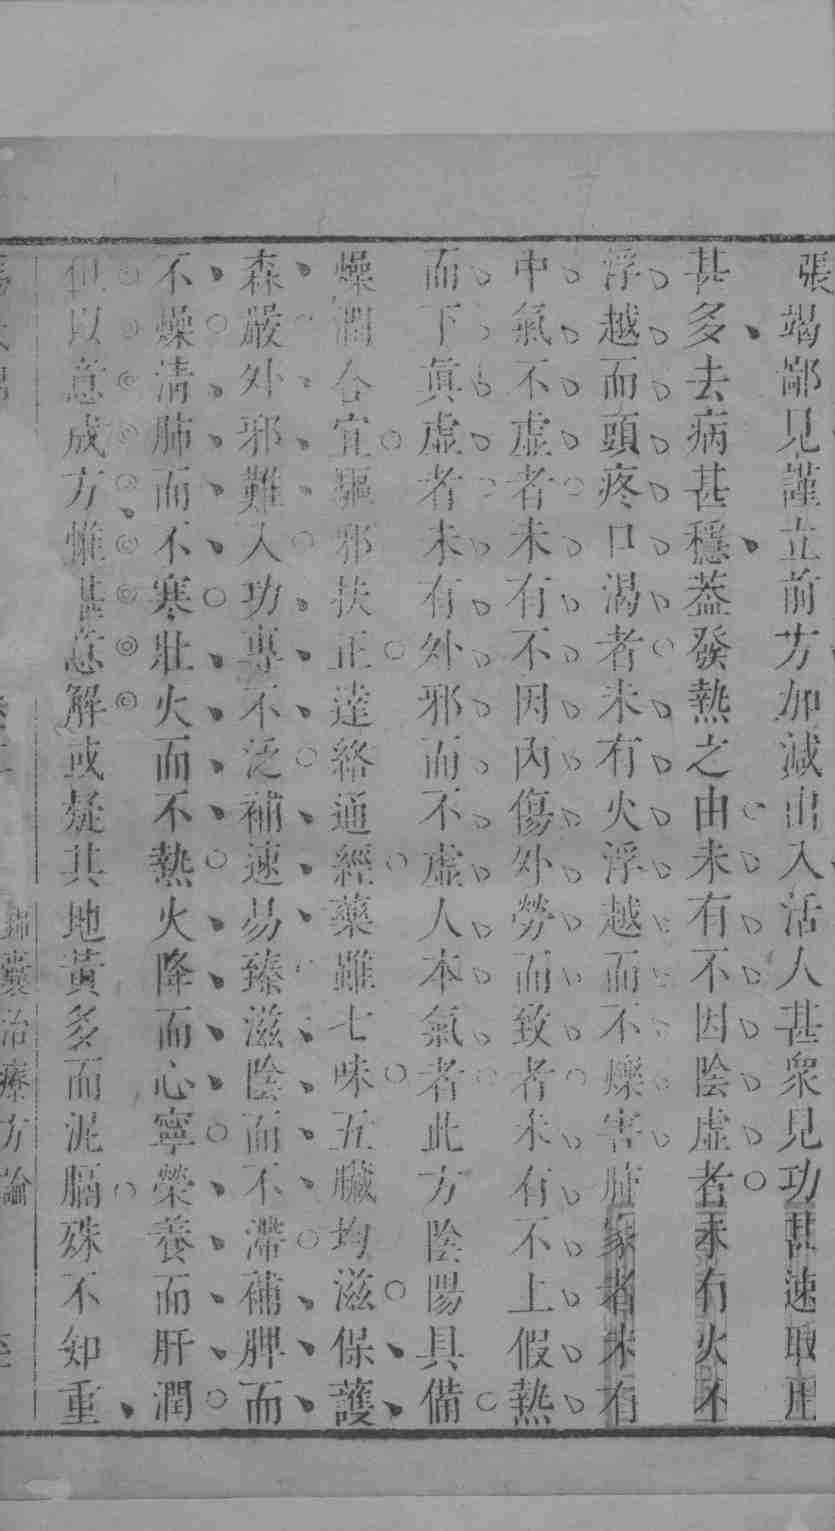 張竭鄙見謹立前方加減出入活人甚衆見功甚速取用
甚多去病甚穩葢發熱之由未有不因陰虛者未有火不
浮越而頭疼口渴者未有火浮越而不爍害肺家者未有
中氣不虛者未有不因內傷外勞而致者未有不上假熱
而下眞虛者未有外邪而不虛人本氣者此方陰陽具備
燥潤合宜驅邪扶正達絡通經藥雖七味五臟均滋保護
森嚴外邪難入功專不泛補速易臻滋陰而不滯補脾而
不燥淸肺而不寒壯火而不熱火降而心寧榮養而肝潤
但以意成方惟甚意解或疑其地黃多而泥膈殊不知重
錦囊治療方論